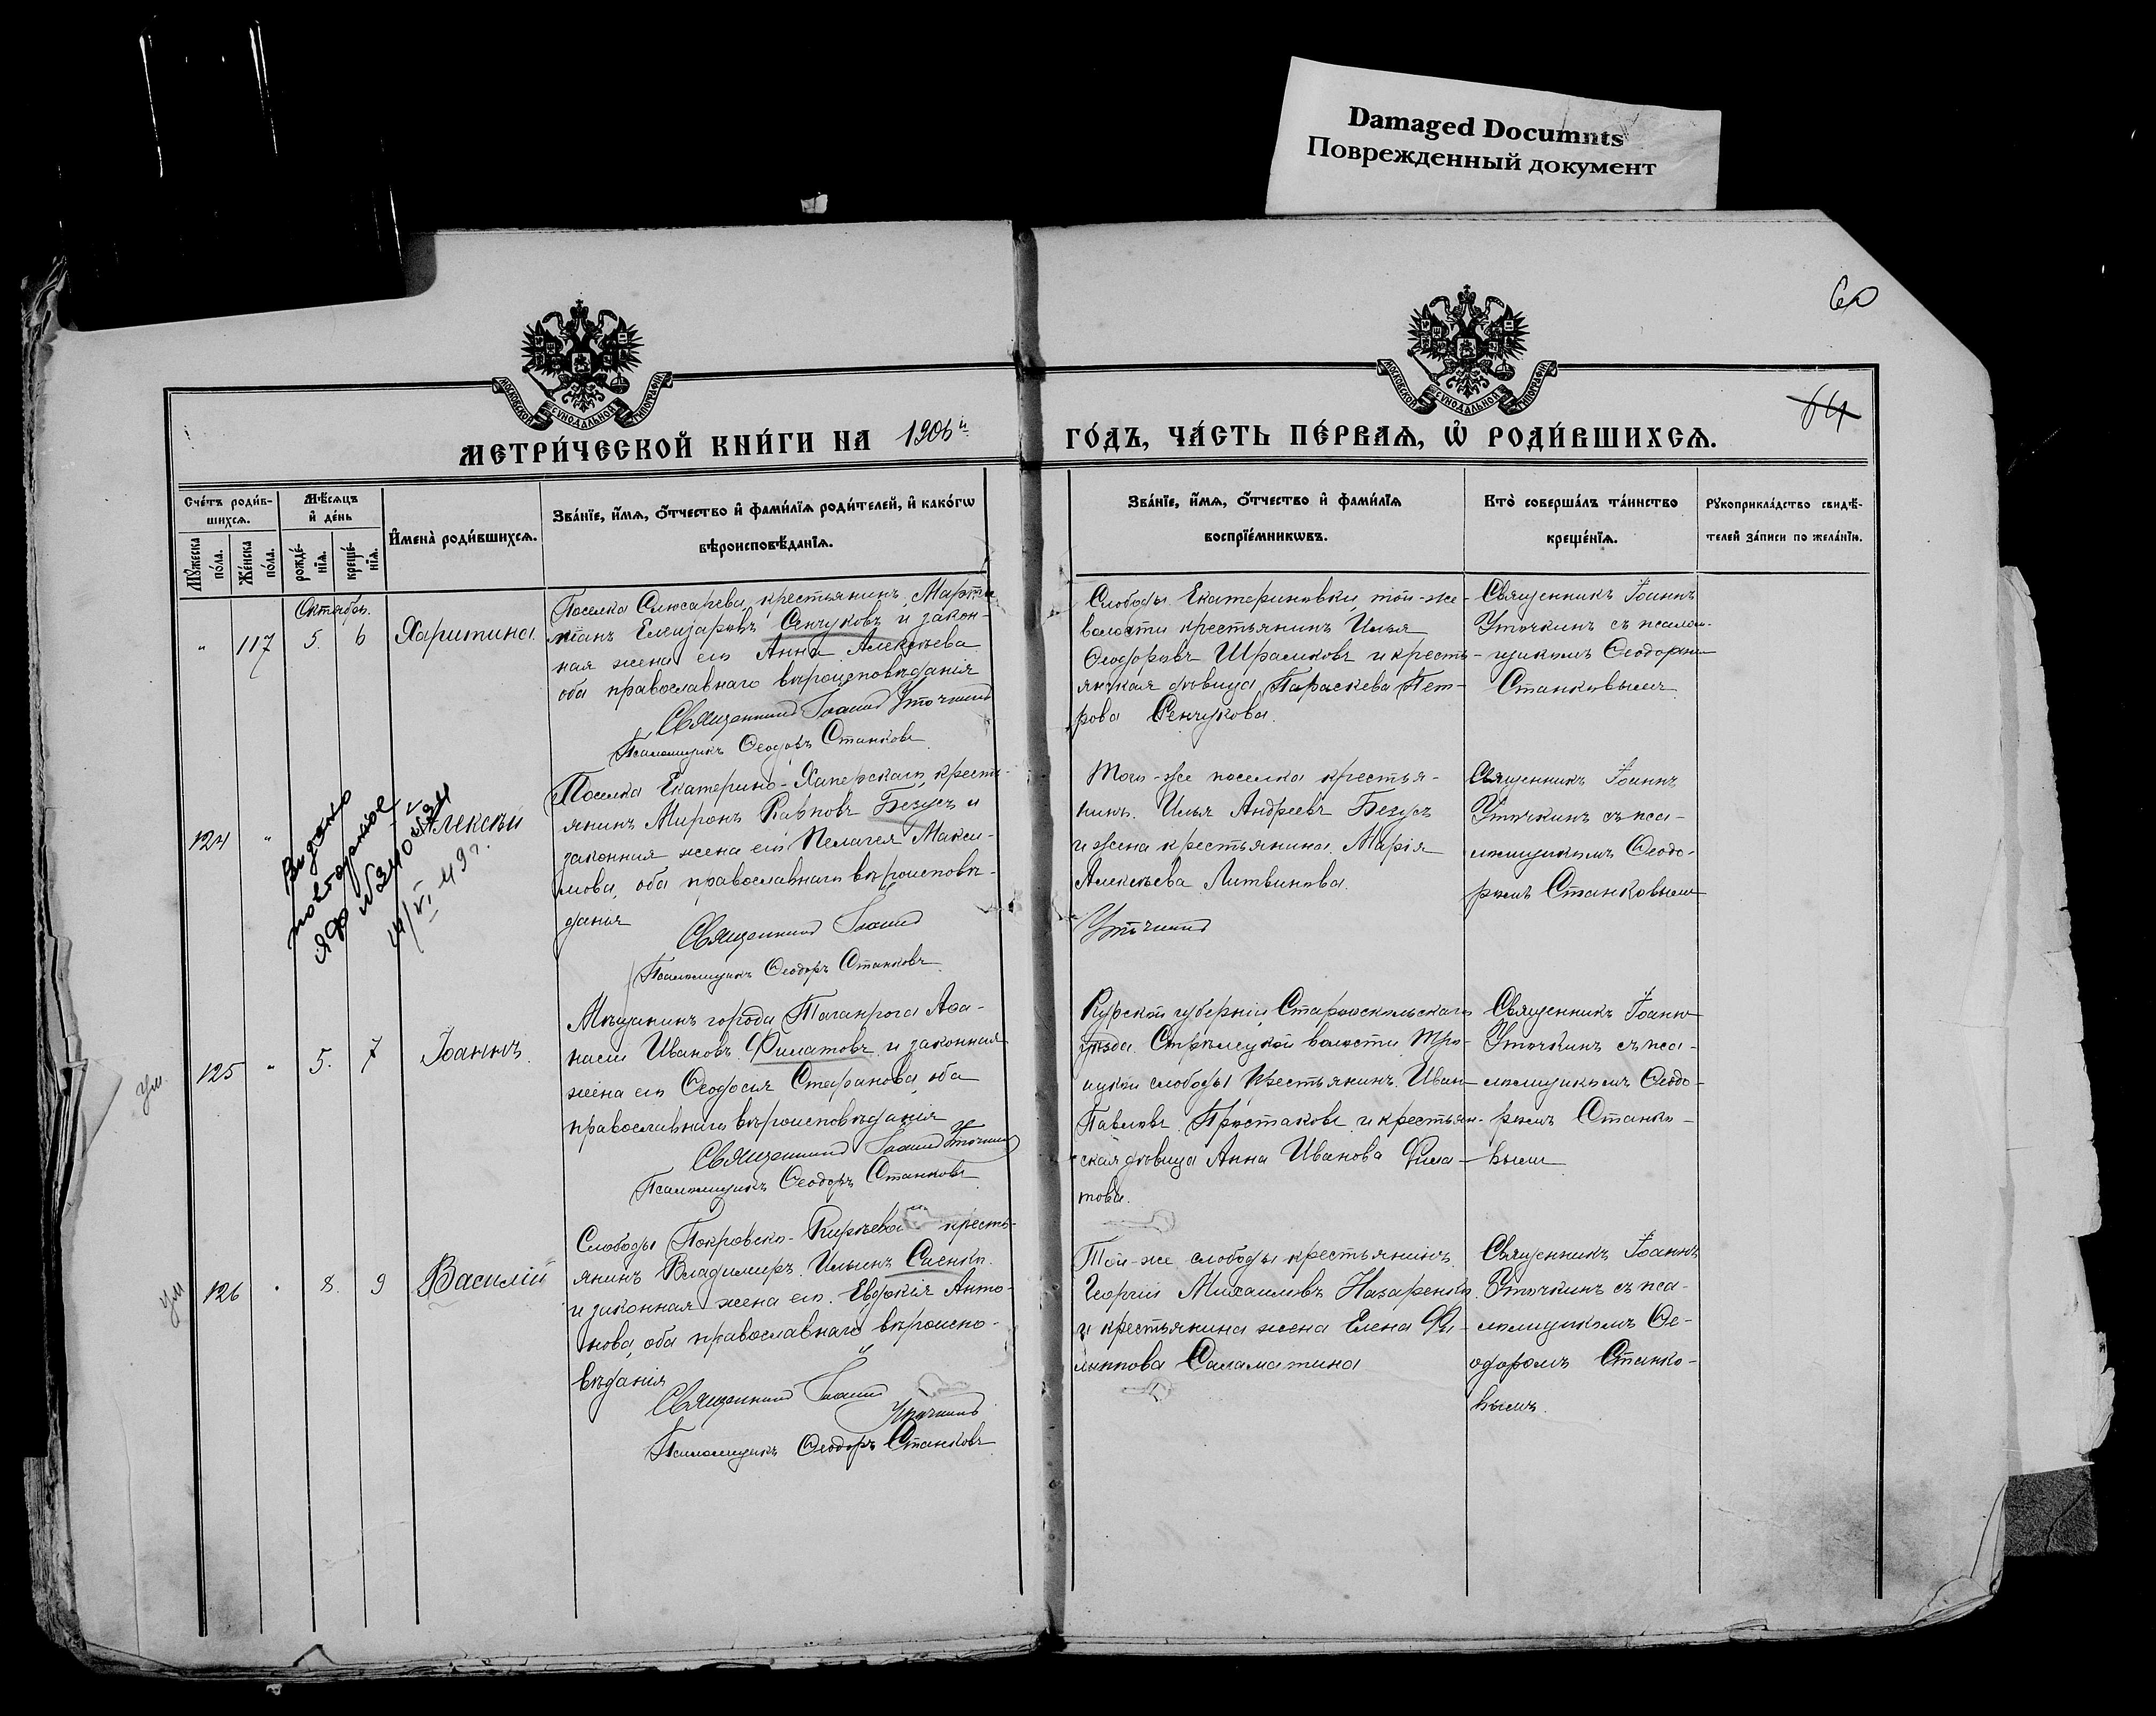 Damaged Documnts
Поврежденный документ
60
64
МОСКОВСКОЙ СУНОДАЛЬНОЙ ТИПОГРАФІИ
МОСКОВСКОЙ СУНОДАЛЬНОЙ ТИПОГРАФІИ
МЕТРИ́ЧЕСКОЙ КНИ́ГИ НА 1906й ГО́ДЪ, ЧА́СТЬ ПЕ́РВАѦ, Ѡ҆ РОДИ́ВШИХСѦ.
Сче́тъ роди́в-
шихсѧ.
Мꙋ́жеска по́ла.
Же́нска по́ла.
Мѣ́сѧцъ
и҆ де́нь
рожде́-
нїѧ.
креще́-
нїѧ.
И҆мена̀ роди́вшихсѧ.
Зва́нїе, и҆́мѧ, ѻ҆́тчество и҆ фами́лїѧ роди́телей, и҆ како́гѡ
вѣроисповѣ́данїѧ.
Зва́нїе, и҆́мѧ, ѻ҆́тчество и҆ фами́лїѧ
воспрїе́мникѡвъ.
Кто̀ соверша́лъ та́инство
креще́нїѧ.
Рꙋкоприкла́дство свидѣ́-
телей за́писи по жела́нїю.
Октябрь.
" 117 5. 6 Харитина.
Поселка Слюсарева крестьянинъ
Елеазаровъ Сенчуковъ и закон-
ная жена его Анна Алексѣева
оба православнаго вѣроисповѣданія
Священникъ Іоаннъ Уточкинъ
Псаломщикъ Ѳеодоръ Станковъ
Слободы Екатериновки, той-же
волости крестьянинъ Илья
Ѳеодоровъ Шрамковъ и кресть-
янская дѣвица Параскева Пет-
рова Сенчукова.
Священникъ Іоаннъ
Уточкинъ съ псалом-
щикомъ Ѳеодоромъ
Станковымъ
124 " Алексѣй
Выдано
повторное
14/VI 49 г.
Поселка Екатерино-Хаперскаго, кресть-
янинъ Миронъ Карповъ Безусъ и
законная жена его Пелагея Макси-
мова, оба православнаго вѣроисповѣ-
данія
Священникъ Іоаннъ
Уточкинъ
Псаломщикъ Ѳеодоръ Станковъ
Того-же поселка крестья-
нинъ Илья Андреевъ Безусъ
и жена крестьянина Марія
Алексѣева Литвинова.
Священникъ Іоаннъ
Уточкинъ съ пса-
ломщикомъ Ѳеодо-
ромъ Станковымъ
ум.
125 " 5. 7 Іоаннъ.
Мѣщанинъ города Таганрога Аѳа-
насій Ивановъ Филатовъ и законная
жена его Ѳеодосія Стефанова, оба
православнаго вѣроисповѣданія
Священникъ Іоаннъ Уточкинъ
Псаломщикъ Ѳеодоръ Станковъ
Курской губерніи, Старооскольскаго
уѣзда Стрѣлецкой волости Тро-
ицкой слободы крестьянинъ Иванъ
Павловъ Простаковъ и крестьян-
ская дѣвица Анна Иванова Фила-
това.
Священникъ Іоаннъ
Уточкинъ съ пса-
ломщикомъ Ѳеодо-
ромъ Станко-
вымъ
ум
126 " 8. 9 Василій
Слободы Покровско-Кирѣева кресть-
янинъ Владимиръ Ильинъ Сиенко
и законная жена его Евдокія Анто-
нова, оба православнаго вѣроиспо-
вѣданія
Священникъ Іоаннъ
Уточкинъ
Псаломщикъ Ѳеодоръ Станковъ
Той-же слободы крестьянинъ
Георгій Михаиловъ Назаренко
и крестьянина жена Елена Фи-
липпова Саламатина
Священникъ Іоаннъ
Уточкинъ съ пса-
ломщикомъ Ѳе-
одоромъ Станко-
вымъ.